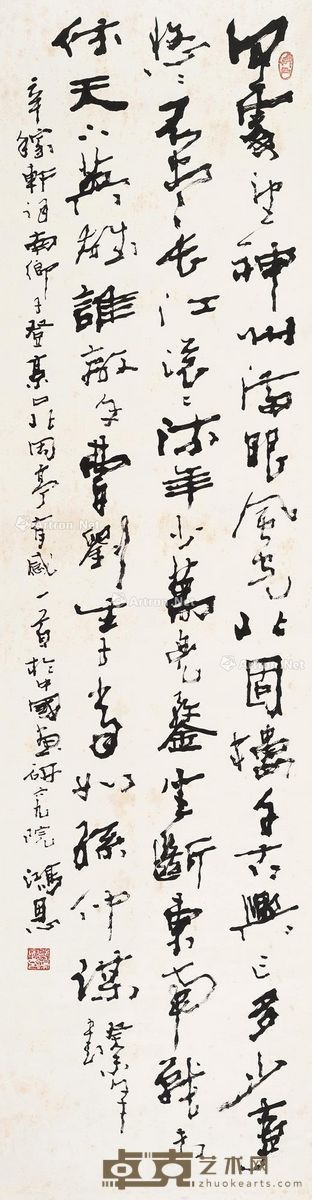 何處望神州滿眼風光北固樓千古興亡多少事
悠〻不盡長江滾〻流年少萬兜鍪坐斷東南戰未
休天下英雄誰敵手曹劉生子當如孫仲謀癸未年
辛稼軒詞南鄉子登京口北固亭有感一首於中國畫研究院鴻恩
Artron.Net
Artron.Net
Artron.Net
卓克艺术网
www.zhuokearts.com